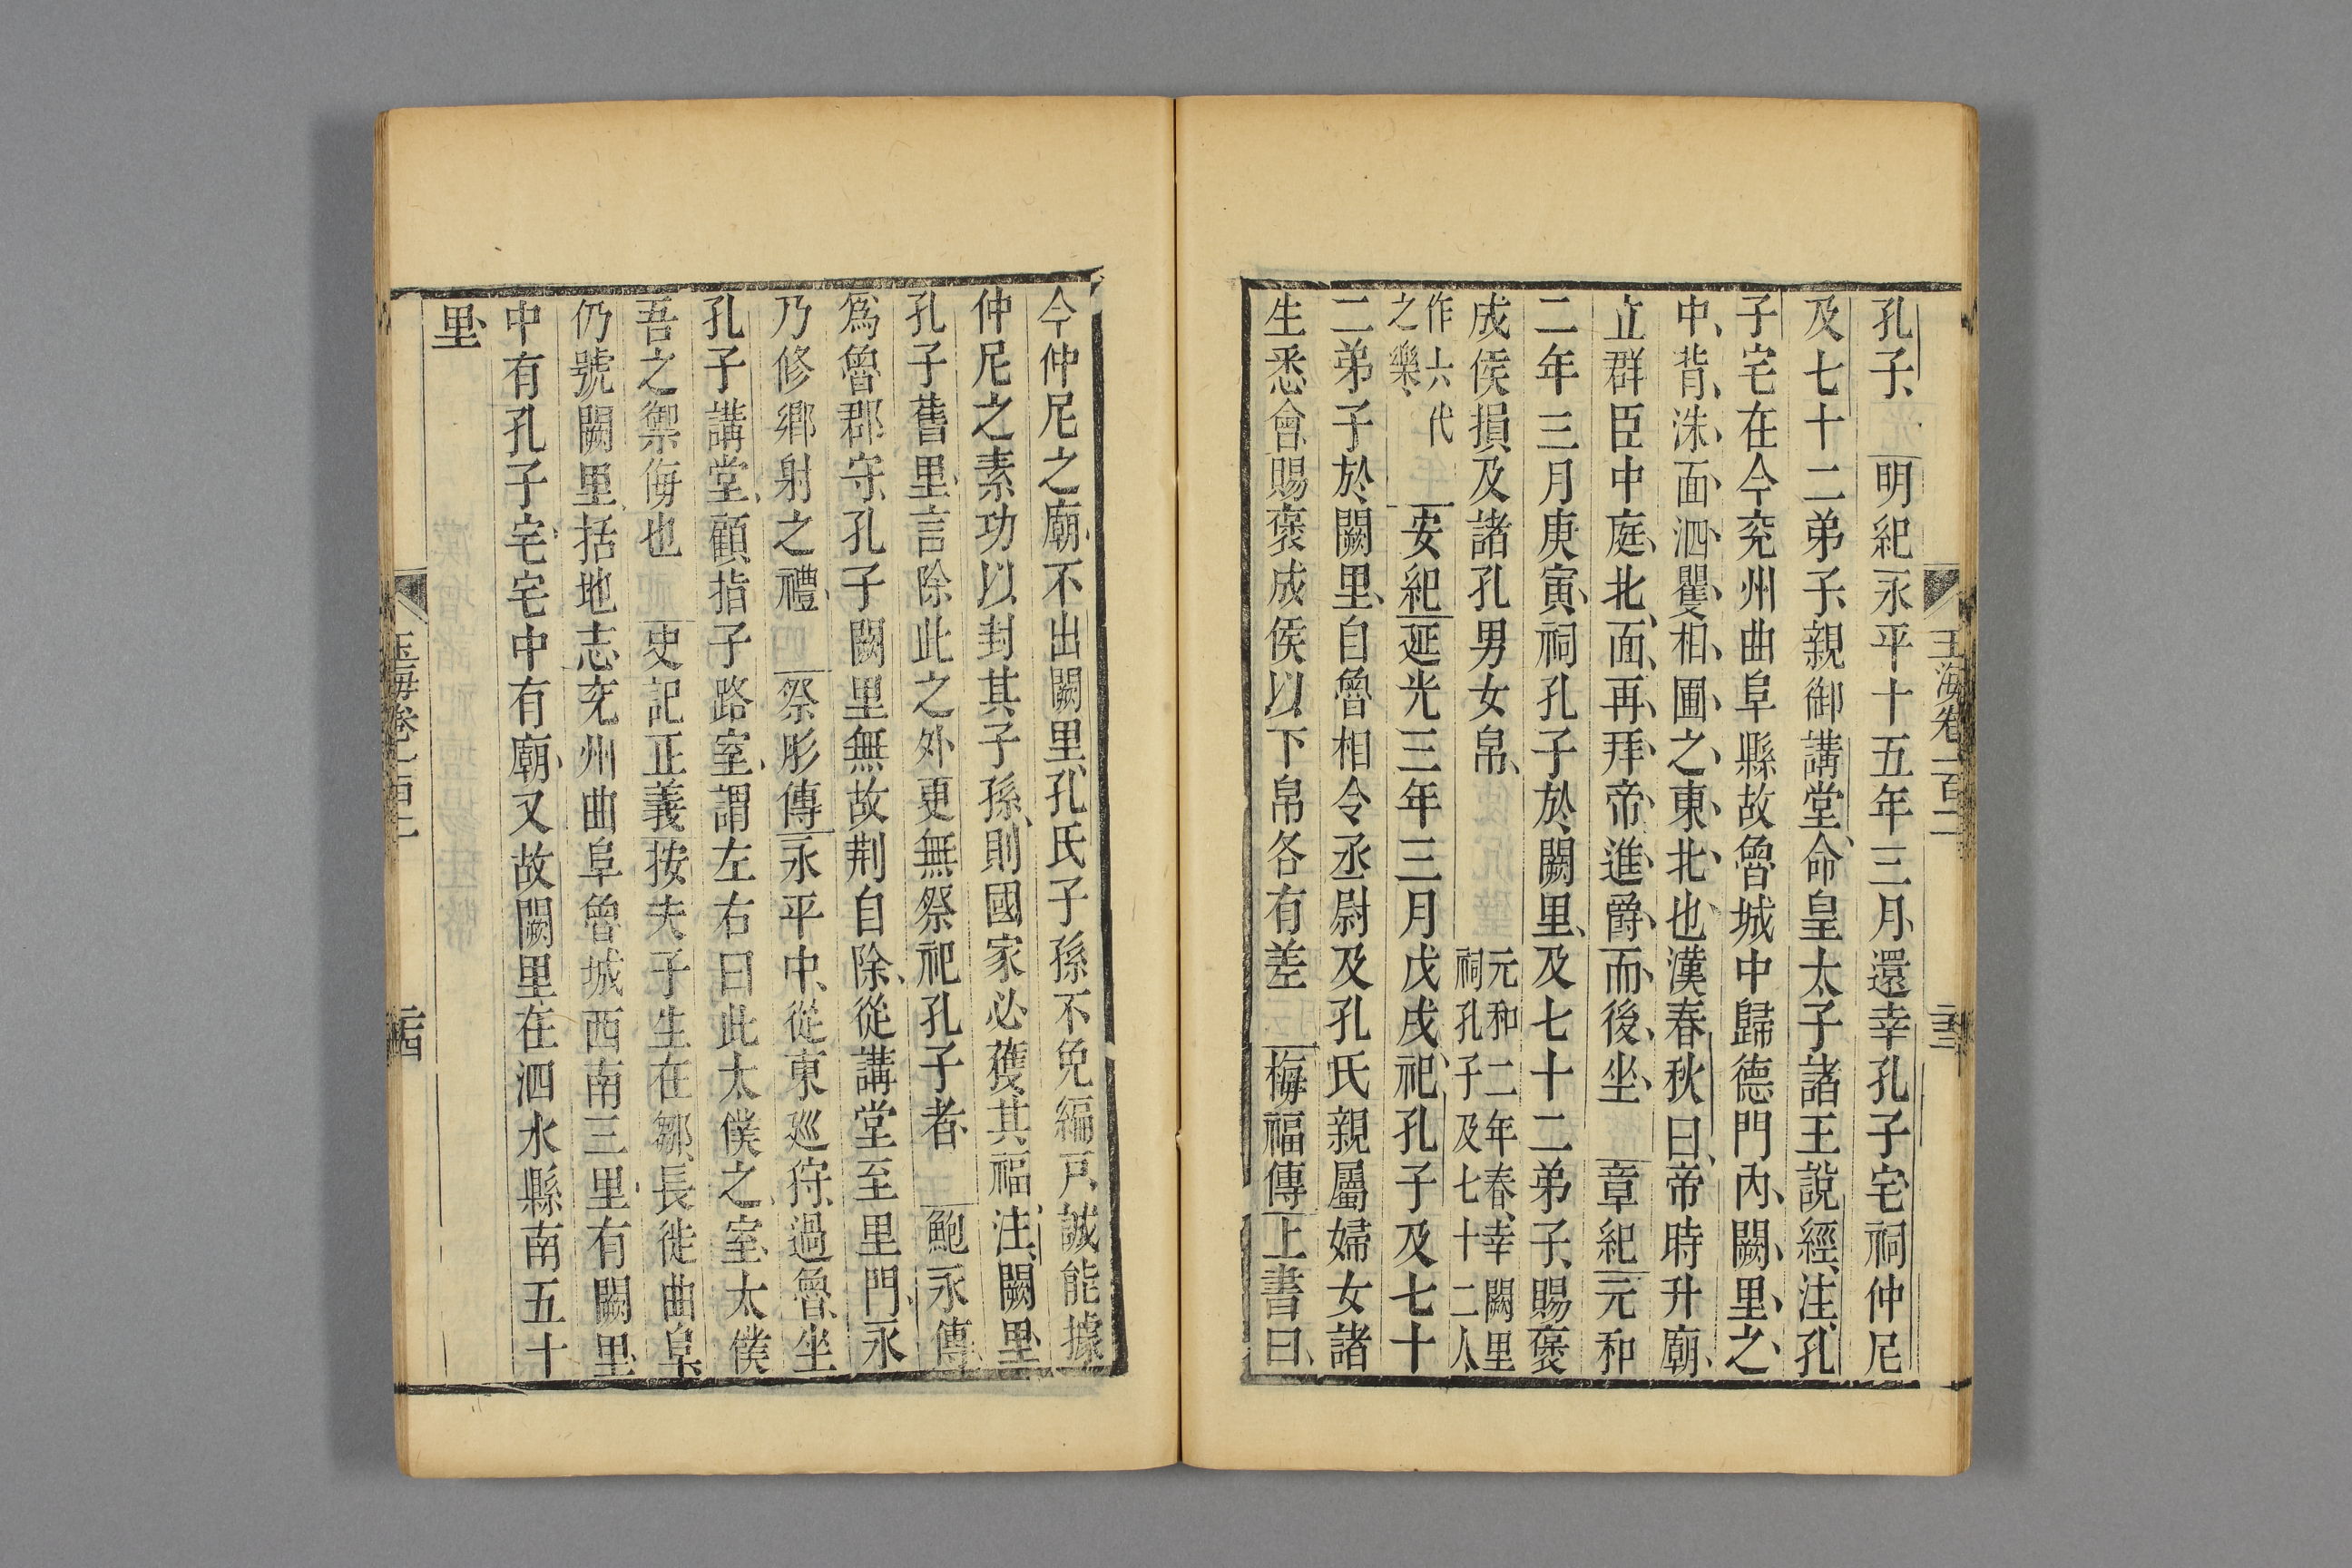 玉海卷一百二
孔子明紀永平十五年三月還幸孔子宅祠仲尼
及七十二弟子親御講堂命皇太子諸王說經注孔
子宅在今兖州曲阜縣故魯城中歸德門內闕里之
中背洙面泗矍相圃之東北也漢春秋曰帝時升廟
立群臣中庭北面再拜帝進爵而後坐章紀元和
二年三月庚寅祠孔子於闕里及七十二弟子賜褒
成侯損及諸孔男女帛元和二年春幸闕里祠孔子及七十二人
作六代之樂安紀延光三年三月戊戌祀孔子及七十
二弟子於闕里自魯相令丞尉及孔氏親屬婦女諸
生悉會賜褒成侯以下帛各有差梅福傳上書曰
今仲尼之廟不出闕里孔氏子孫不免編戸誠能據
仲尼之素功以封其子孫則國家必獲其福注闕里
孔子舊里言除此之外更無祭祀孔子者鮑永傳
爲魯郡守孔子闕里無故荆自除從講堂至里門永
乃修鄉射之禮祭肜傳永平中從東廵狩過魯坐
孔子講堂顧指子路室謂左右曰此太僕之室太僕
吾之禦侮也史記正義按夫子生在鄒長徙曲阜
仍號闕里括地志兖州曲阜魯城西南三里有闕里
中有孔子宅宅中有廟又故闕里在泗水縣南五十
里
玉海卷一百二